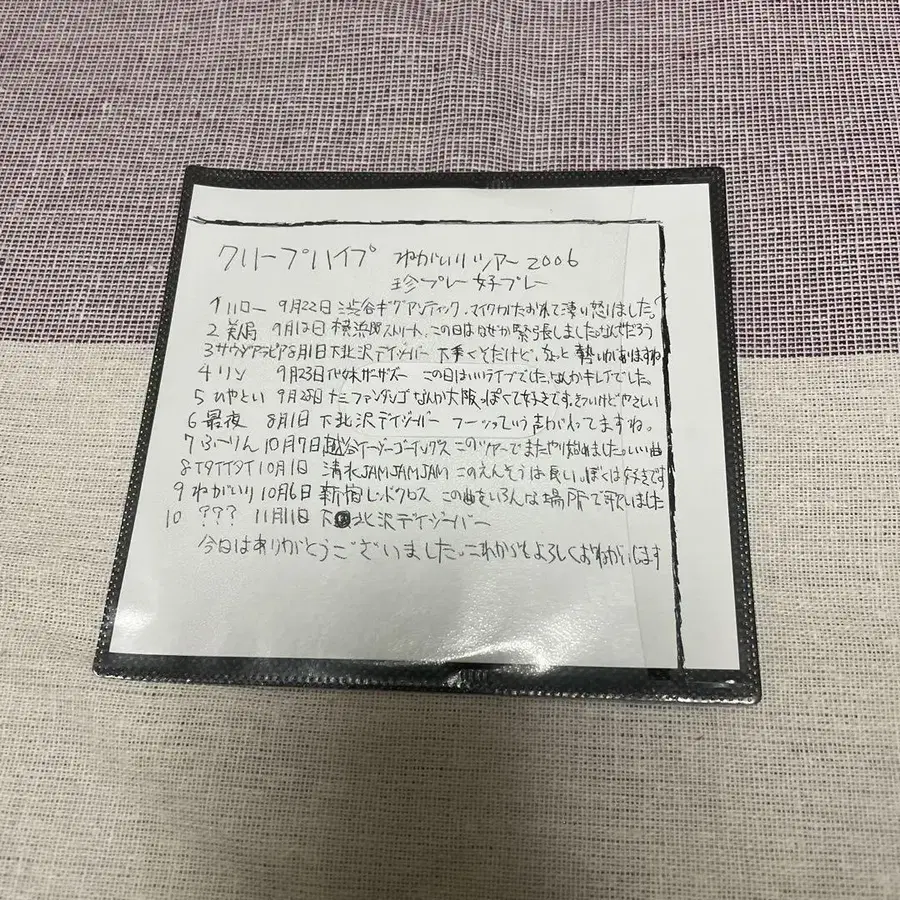 クリープハイプ ねがいりツアー2006
珍プレー好プレー
1 ハロー 9月22日 渋谷ギグアンティック、マイクがたおれて凄い怒りました。
2 美人局 9月12日 横浜 ストリート、この日はなぜか緊張しました。なんでだろう
3 サウジアラビア 8月1日 下北沢デイジーバー 下手くそだけど、 勢いがありますね
4 リン 9月23日 この日はいいライブでした。なんかキレイでした。
5 ひやとい 9月28日 十三ファンダンゴ なんか大阪っぽくて好きです。きついけどやさしい
6 最夜 8月1日 下北沢デイジーバー フーッっていう声がいってますね。
7 ふーりん 10月7日 越谷イージーゴーイングス このツアーでまたやり始めました。いい曲
8 イタイイタイ 10月1日 清水JAMJAMJAM このえんそうは長い。ぼくは好きです
9 ねがいり 10月6日 新宿レッドクロス この曲をいろんな場所で歌いました
10 ??? 11月11日 下北沢デイジーバー
今日はありがとうございました。これからもよろしくおねがいします